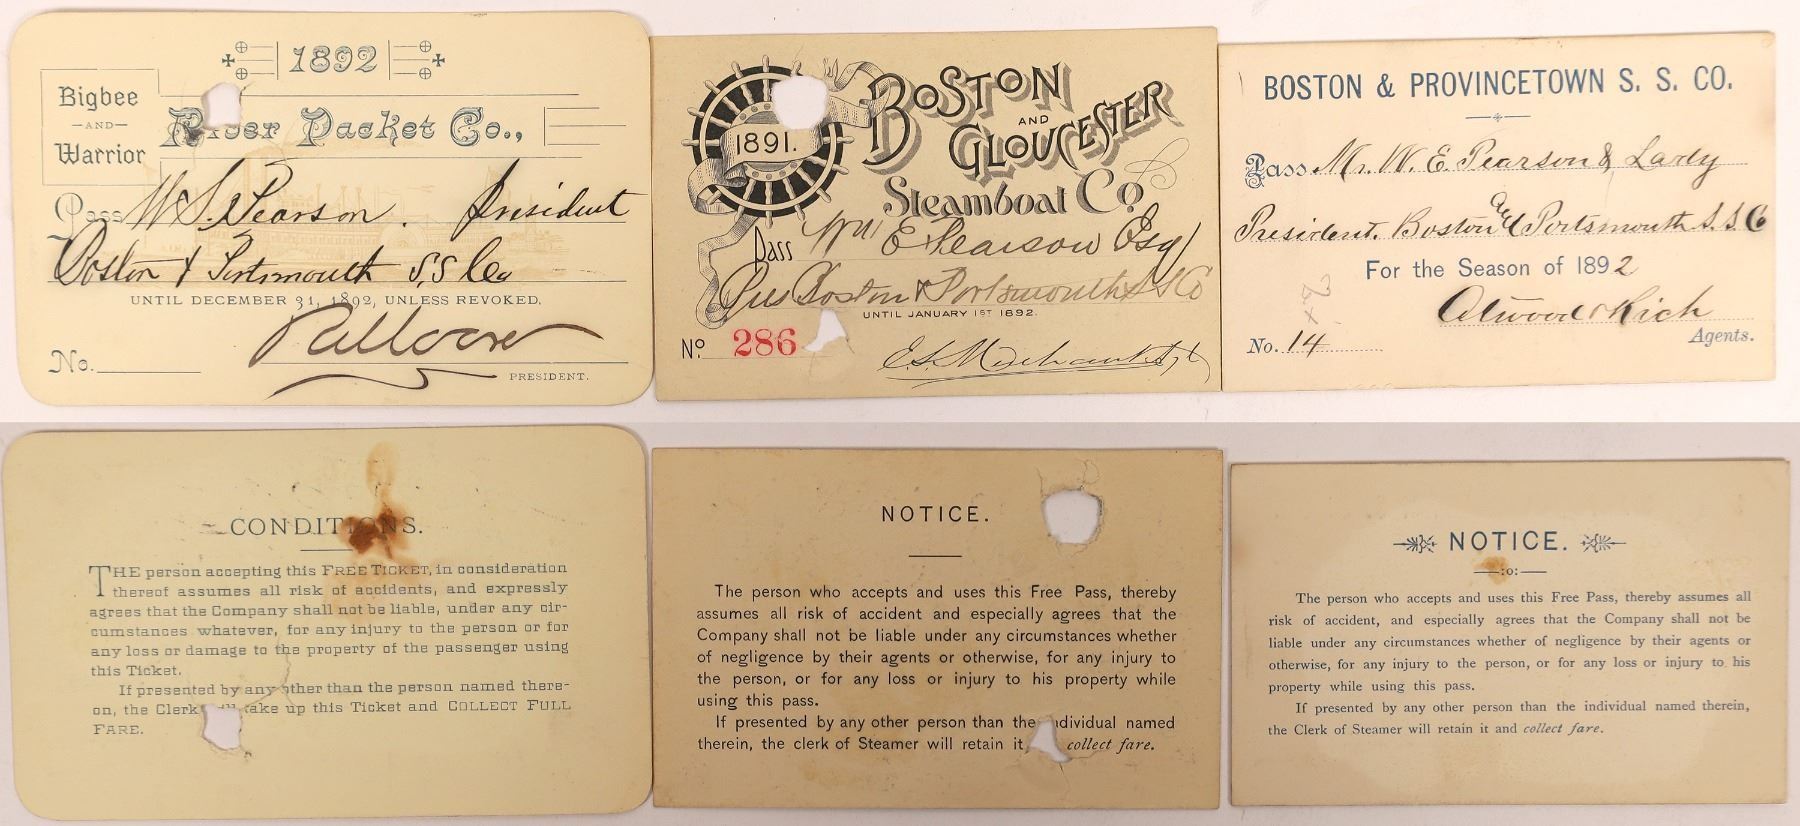 1892
Bigbee
—AND—
Warrior
River Packet Co.,
Pass W. S. Pearson. President
Boston & Portsmouth S.S. Co
UNTIL DECEMBER 31, 1892, UNLESS REVOKED.
No.
PRESIDENT.
1891.
BOSTON
AND
GLOUCESTER
Steamboat Co.
Pass Wm E Pearson Esq
Pres Boston & Portsmouth S S Co
UNTIL JANUARY 1ST 1892.
No 286
BOSTON & PROVINCETOWN S. S. CO.
Pass Mr. W. E. Pearson & Lady
President. Boston and Portsmouth S. S. Co
For the Season of 1892
Atwood & Rich
No. 14
Agents.
CONDITIONS.
THE person accepting this FREE TICKET, in consideration
thereof assumes all risk of accidents, and expressly
agrees that the Company shall not be liable, under any cir-
cumstances whatever, for any injury to the person or for
any loss or damage to the property of the passenger using
this Ticket.
If presented by any other than the person named there-
on, the Clerk will take up this Ticket and COLLECT FULL
FARE.
NOTICE.
The person who accepts and uses this Free Pass, thereby
assumes all risk of accident and especially agrees that the
Company shall not be liable under any circumstances whether
of negligence by their agents or otherwise, for any injury to
the person, or for any loss or injury to his property while
using this pass.
If presented by any other person than the individual named
therein, the clerk of Steamer will retain it collect fare.
NOTICE.
—:o:—
The person who accepts and uses this Free Pass, thereby assumes all
risk of accident, and especially agrees that the Company shall not be
liable under any circumstances whether of negligence by their agents or
otherwise, for any injury to the person, or for any loss or injury to his
property while using this pass.
If presented by any other person than the individual named therein,
the Clerk of Steamer will retain it and collect fare.